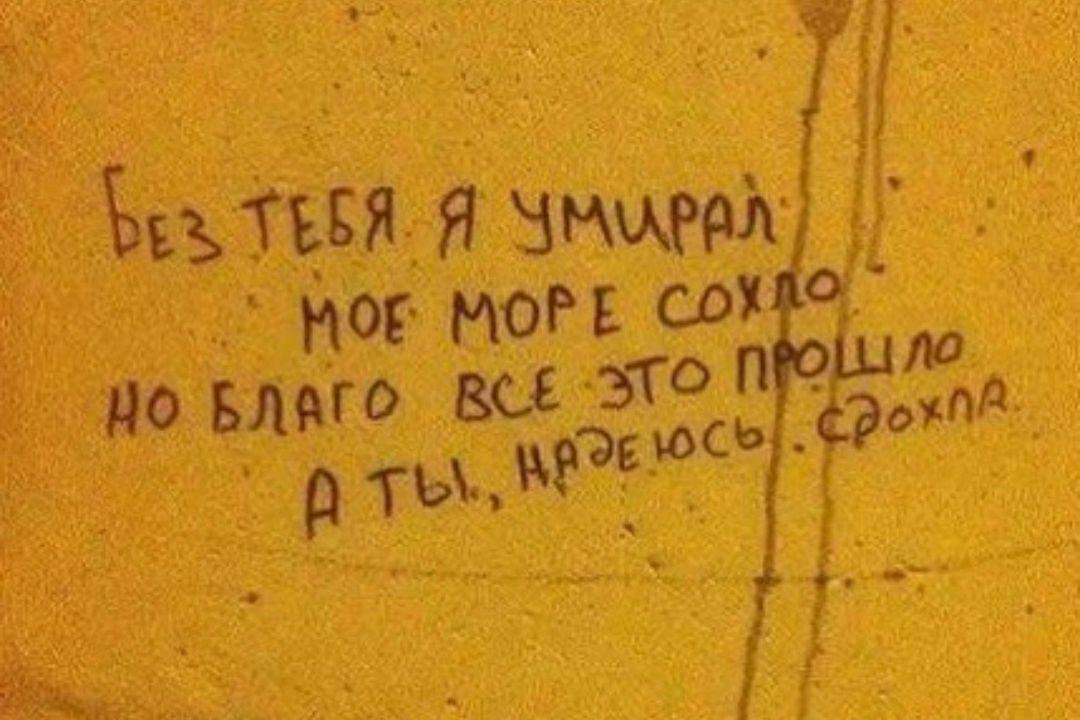 БЕЗ ТЕБЯ Я УМИРАЛ
МОЕ МОРЕ СОХЛО
НО БЛАГО ВСЕ ЭТО ПРОШЛО
А ТЫ, НАДЕЮСЬ, СДОХЛА